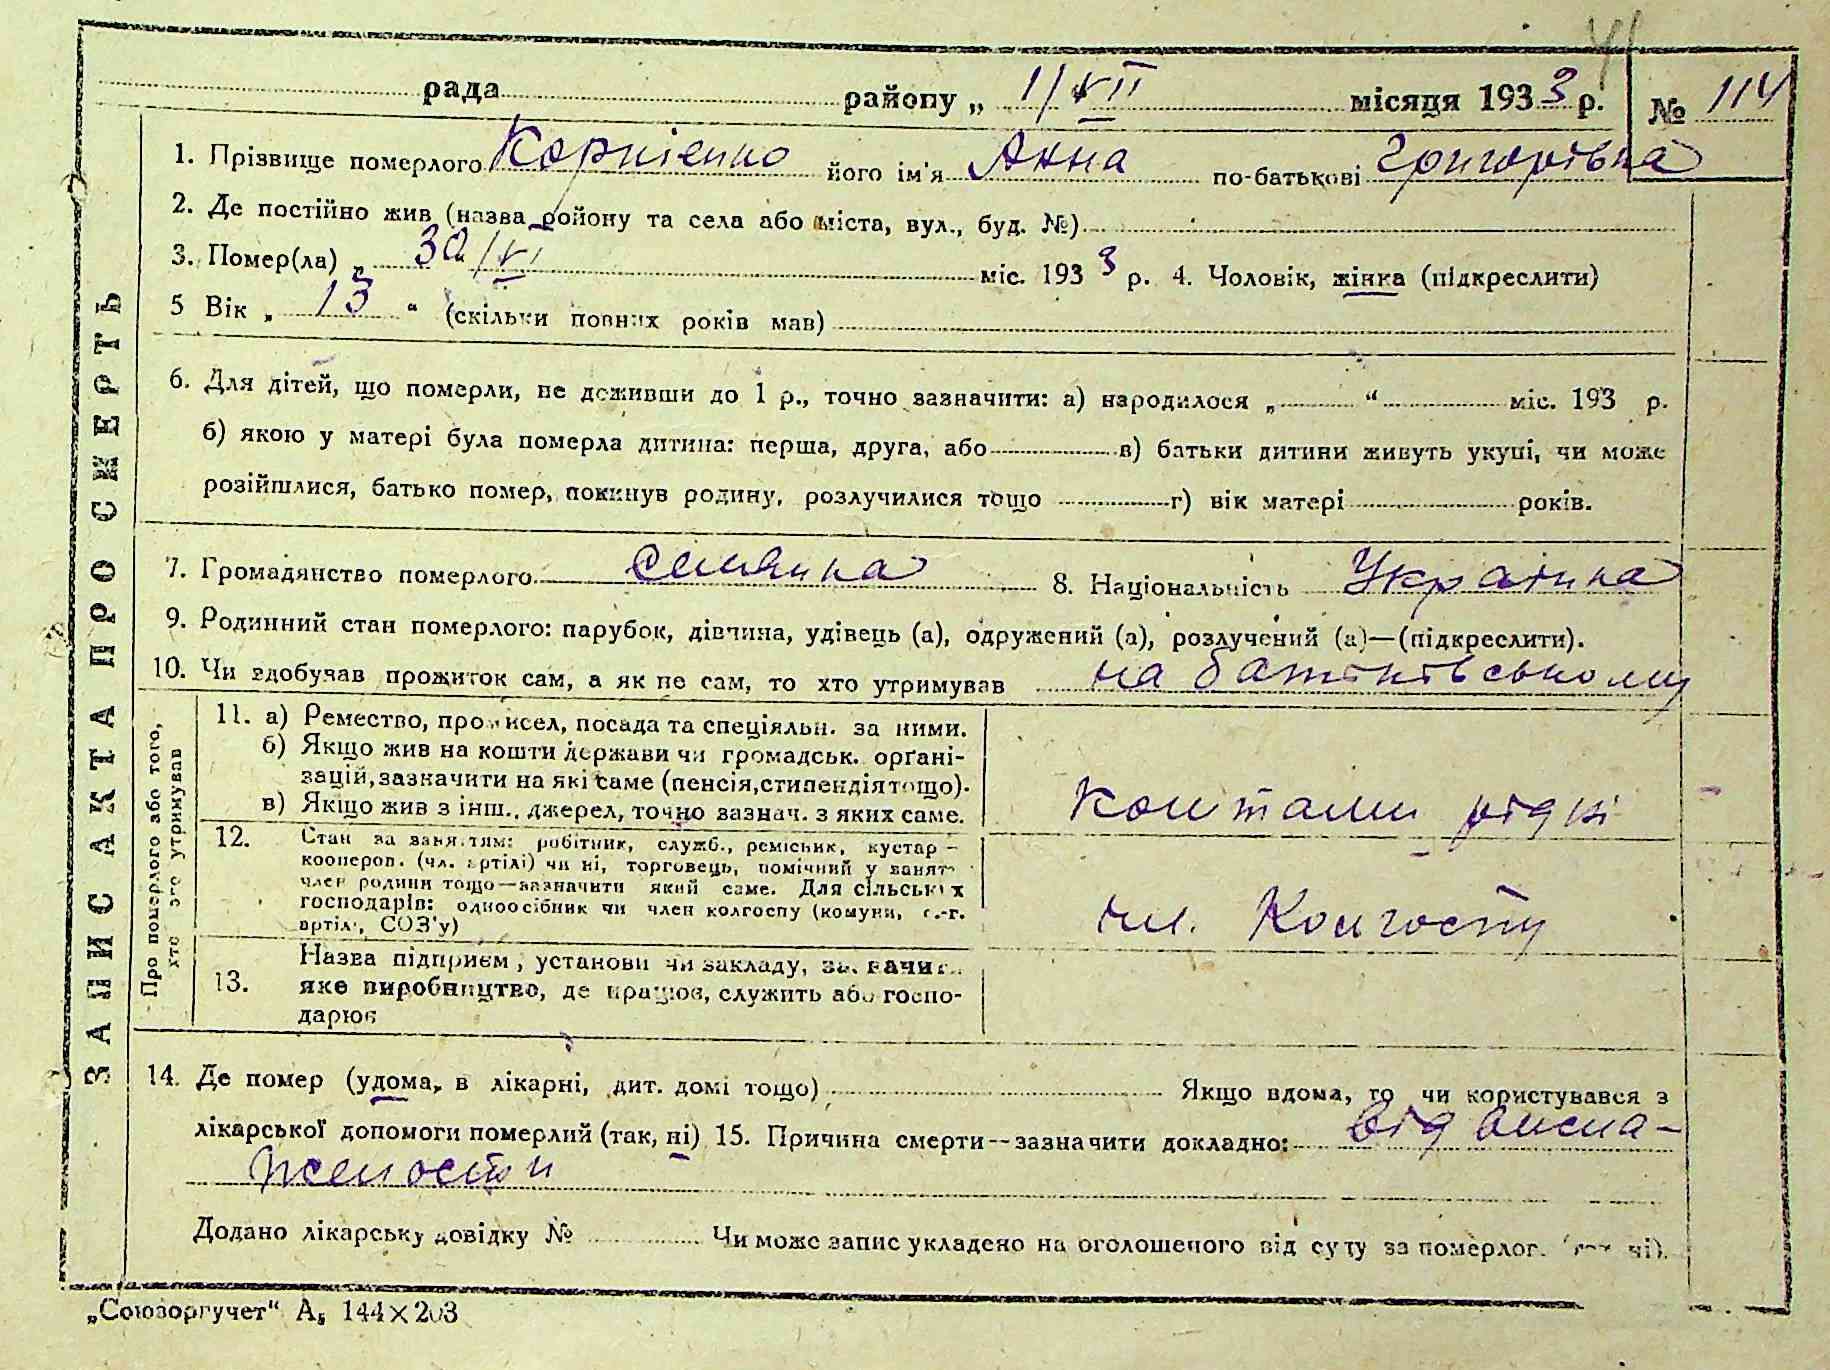 рада районну „ 1/VII місяця 1933 р. № 114
1. Прізвище померлого Корнієнко його ім'я Анна по-батькові Григорівна
2. Де постійно жив (назва району та села або міста, вул., буд. №)
3. Помер(ла) „ 30/VI міс. 1933 р. 4. Чоловік, жінка (підкреслити)
5 Вік „ 13 “ (скільки повних років мав)
6. Для дітей, що померли, не доживши до 1 р., точно зазначити: а) народилося „ “ міс. 193 р.
б) якою у матері була померла дитина: перша, друга, або в) батьки дитини живуть укупі, чи може
розійшлися, батько помер, покинув родину, розлучилися тощо г) вік матері років.
7. Громадянство померлого селянка 8. Національність Українка
9. Родинний стан померлого: парубок, дівчина, удівець (а), одружений (а), розлучений (а)—(підкреслити).
10. Чи здобував прожиток сам, а як не сам, то хто утримував на батьківському
Про померлого або того,
хто его утримував
11. а) Ремество, промисел, посада та спеціяльн. за ними.
б) Якщо жив на кошти держави чи громадськ. орґані-
зацій, зазначити на які саме (пенсія, стипендія тощо).
в) Якщо жив з інш., джерел, точно зазнач. з яких саме.
коштами рідні
12. Стан за заняттям: робітник, служб., ремісник, кустар –
коопероп. (чл. артілі) чи ні, торговець, помічний у занят
член родини тощо—зазначити який саме. Для сільських
господарів: одноосібник чи член колгоспу (комуни, с.-г.
артіл', СОЗ'у)
чл. Колгоспу
13. Назва підприєм, установи чи закладу, зазначит
яке виробництво, де працює, служить або госпо-
дарює
14. Де помер (удома, в лікарні, дит. домі тощо) Якщо вдома, то чи користувався з
лікарської допомоги померлий (так, ні) 15. Причина смерти—зазначити докладно: від висна-
жености
Додано лікарську довідку № Чи може запис укладено на оголошеного від суду за померлог. (так ні).
ЗАПИС АКТА ПРО СМЕРТЬ
„Союзоргучет“ А5 144×203